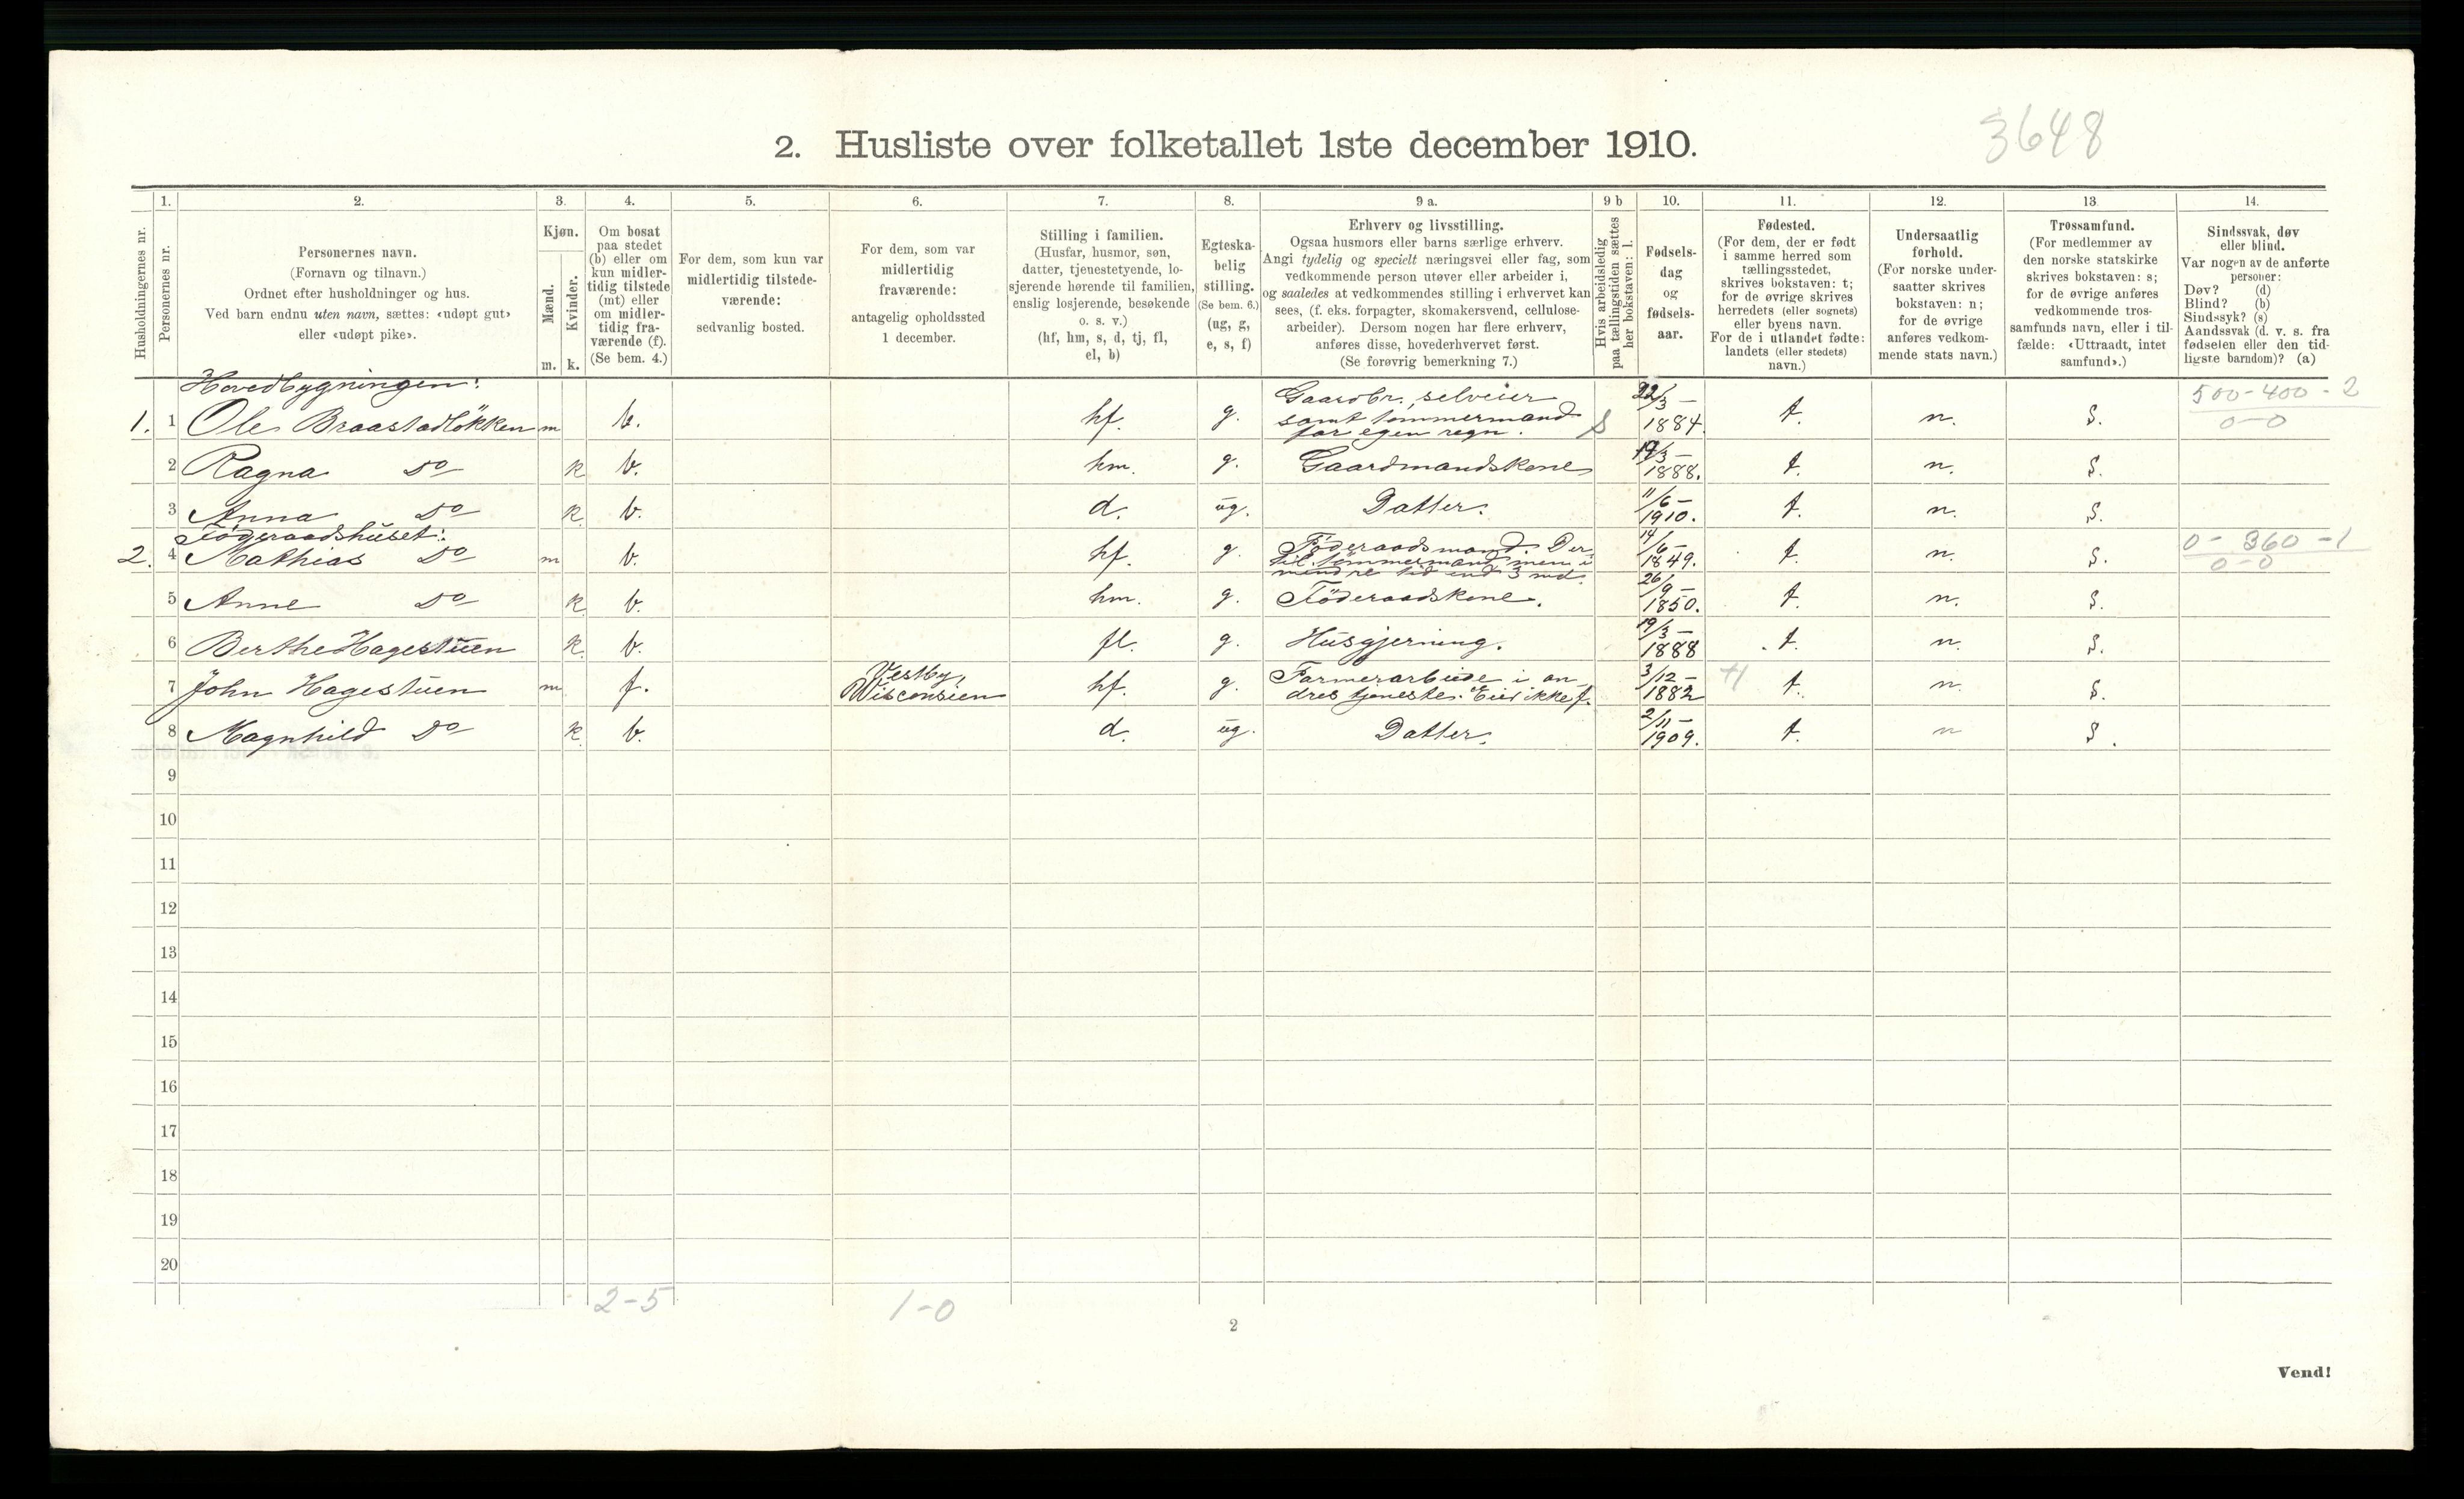 3648
2. Husliste over folketallet 1ste december 1910.
1. 2. 3. 4. 5. 6. 7. 8. 9 a. 9 b 10. 11. 12. 13 14.
Husholdningernes nr.
Personernes nr.
Personernes navn.
(Fornavn og tilnavn.)
Ordnet efter husholdninger og hus.
Ved barn endnu uten navn, sættes: «udøpt gut»
eller «udøpt pike».
Kjøn.
Mænd.
Kvinder.
m. k.
Om bosat
paa stedet
(b) eller om
kun midler-
tidig tilstede
(mt) eller
om midler-
tidig fra-
værende (f).
(Se bem. 4.)
For dem, som kun var
midlertidig tilstede-
værende:
sedvanlig bosted.
For dem, som var
midlertidig
fraværende:
antagelig opholdssted
1 december.
Stilling i familien.
(Husfar, husmor, søn,
datter, tjenestetyende, lo-
sjerende hørende til familien,
enslig losjerende, besøkende
o. s. v.)
(hf, hm, s, d, tj, fl,
el, b)
Egteska-
belig
stilling.
(Se bem. 6.)
(ug, g,
e, s, f)
Erhverv og livsstilling.
Ogsaa husmors eller barns særlige erhverv.
Angi tydelig og specielt næringsvei eller fag, som
vedkommende person utøver eller arbeider i,
og saaledes at vedkommendes stilling i erhvervet kan
sees, (f. eks. forpagter, skomakersvend, cellulose-
arbeider). Dersom nogen har flere erhverv,
anføres disse, hovederhvervet først.
(Se forøvrig bemerkning 7.)
Hvis arbeidsledig
paa tællingstiden sættes
her bokstaven: l.
Fødsels-
dag
og
fødsels-
aar.
Fødested.
(For dem, der er født
i samme herred som
tællingsstedet,
skrives bokstaven: t;
for de øvrige skrives
herredets (eller sognets)
eller byens navn.
For de i utlandet fødte:
landets (eller stedets)
navn.)
Undersaatlig
forhold.
(For norske under-
saatter skrives
bokstaven: n;
for de øvrige
anføres vedkom-
mende stats navn.)
Trossamfund.
(For medlemmer av
den norske statskirke
skrives bokstaven: s;
for de øvrige anføres
vedkommende tros-
samfunds navn, eller i til-
fælde: «Uttraadt, intet
samfund».)
Sindssvak, døv
eller blind.
Var nogen av de anførte
personer:
Døv? (d)
Blind? (b)
Sindssyk? (s)
Aandssvak (d. v. s. fra
fødselen eller den tid-
ligste barndom)? (a)
Hovedbygningen:
1. 1 Ole Braastadløkken m b. hf. g. Gaardbr., selveier
samt tømmermand
for egen regn. 22/3 – 1884. t. n. s. 500-400-2
0-0
2 Ragna Do k b. hm. g. Gaardmandskone 19/3 – 1888. t. n. s.
3 Anna Do k b. d. ug. Datter. 11/6 – 1910. t. n. s.
Føderaadshuset:
2. 4 Mathias Do m b. hf. g. Føderaadsmand. Der-
til tømmermand, men i
mindre tid end 3 md. 14/6 – 1849. t. n. s. 0-360-1
0-0
5 Anne Do k b. hm. g. Føderaadskone. 26/9 – 1850. t. n. s.
6 Berthe Hagestuen k. b. fl. g. Husgjerning. 19/3 – 1888 t. n. s.
7 John Hagestuen m f. Vestby,
Wisconsien hf. g. Farmerarbeide i an-
dres tjeneste. Eier ikke f. 3/12 – 1882 t. n. s.
8 Magnhild Do k b. d. ug. Datter. 2/11 – 1909. t. n s.
9
10
11
12
13
14
15
16
17
18
19
20
2-5 1-0
2
Vend!